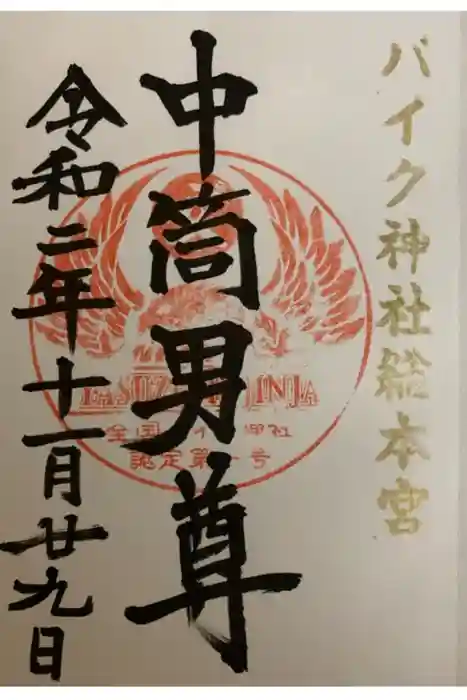 バイク神社総本宮
中筒男尊
令和二年十一月廿九日
JINJA
全国
神社
認定第一号